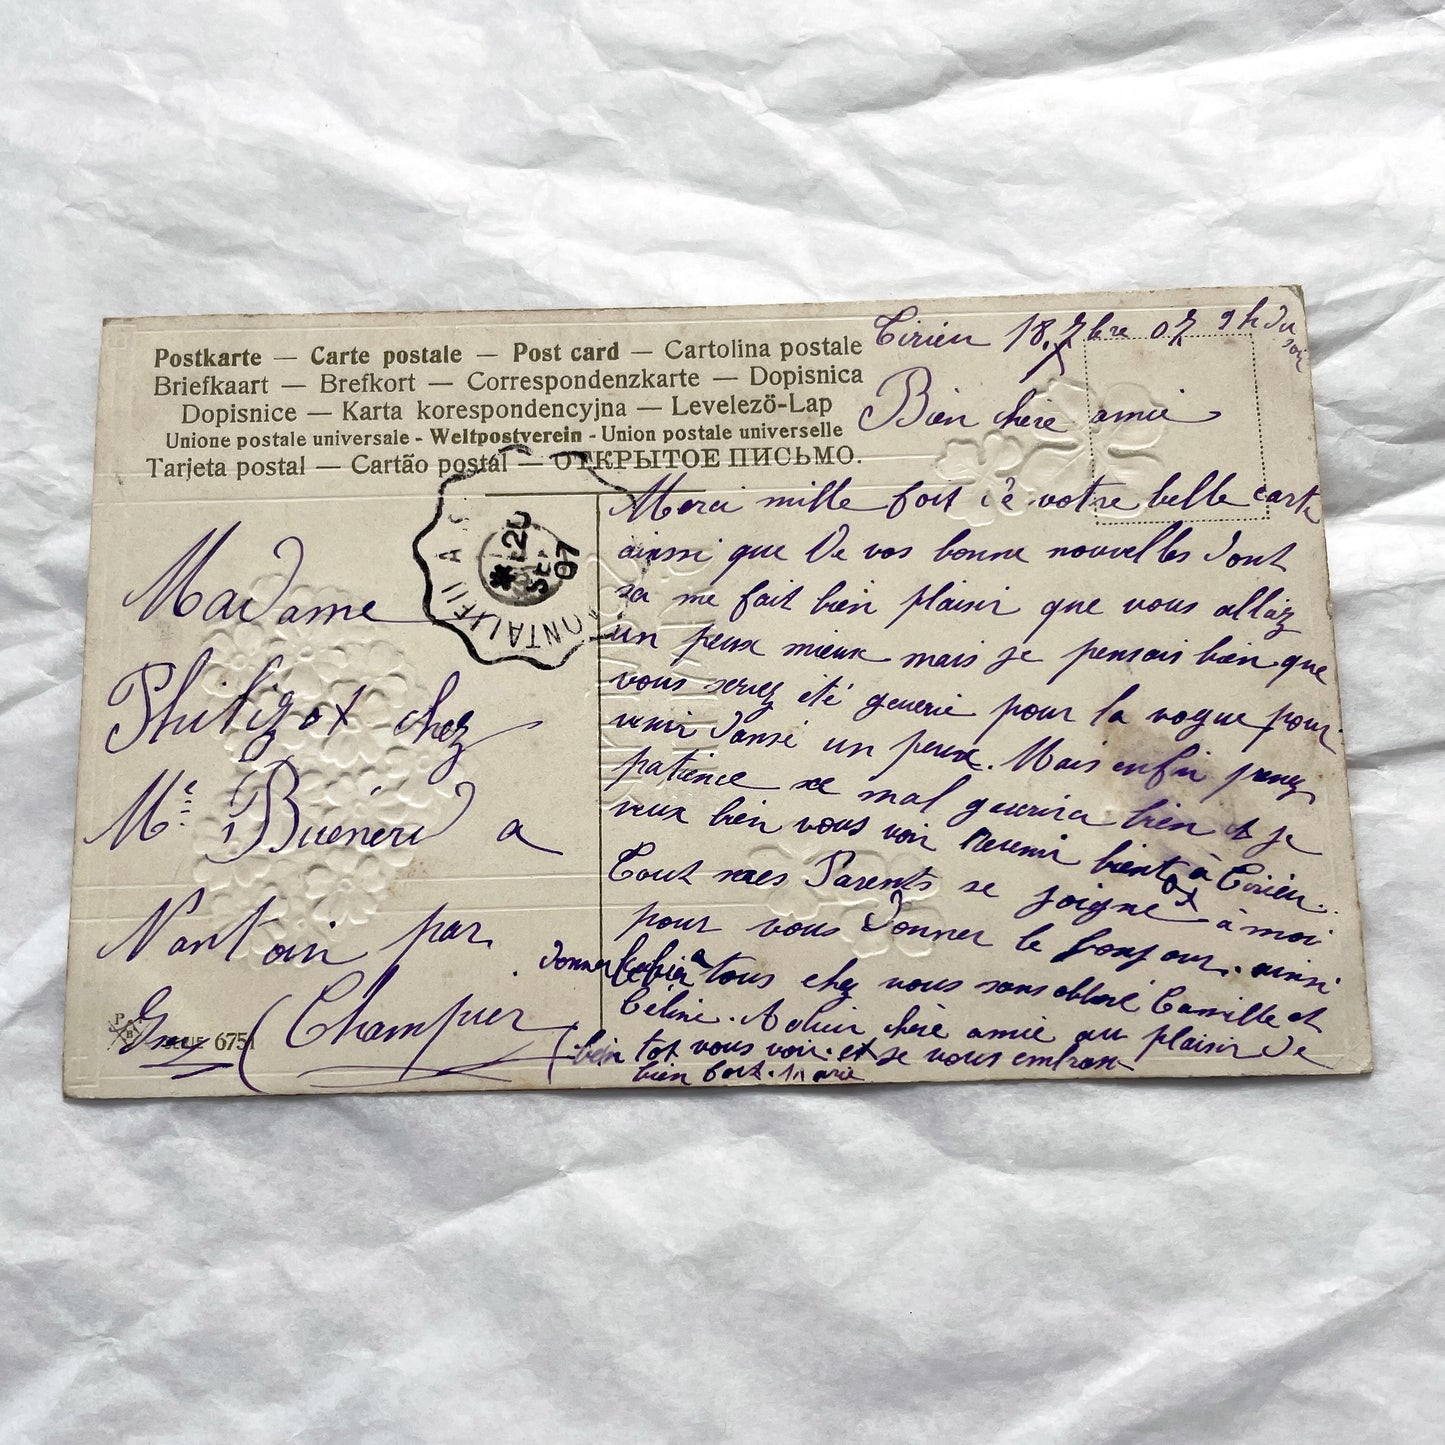 Postkarte — Carte postale — Post card — Cartolina postale
Briefkaart — Brefkort — Correspondenzkarte — Dopisnica
Dopisnice — Karta korespondencyjna — Levelező-Lap
Unione postale universale - Weltpostverein - Union postale universelle
Tarjeta postal — Cartão postal — ОТКРЫТОЕ ПИСЬМО.
20
SEPT
07
PONTAILLER A
Madame
Philizot chez
Me Buenerd a
Nantoin par
(Champier
6751
Cirieu 18 7bre 07 9h du soir
Bien chère amie
Merci mille foit de votre belle carte
ainsi que de vos bonne nouvelles dont
sa me fait bien plaisir que vous allez
un peux mieux mais je pensais bien que
vous serez été guerie pour la vogue pour
venir danse un peux. Mais enfin prenez
patience se mal guerira bien et je
veux bien vous voir revenir bientot à Cirieu.
Tout mes Parents se joigne à moi
pour vous donner le bonjour. ainsi
donner à tous chez vous sans oblore Camille et
Céline. chère amie au plaisir de
bien tot vous voir. et je vous embrass
bien fort. Marie